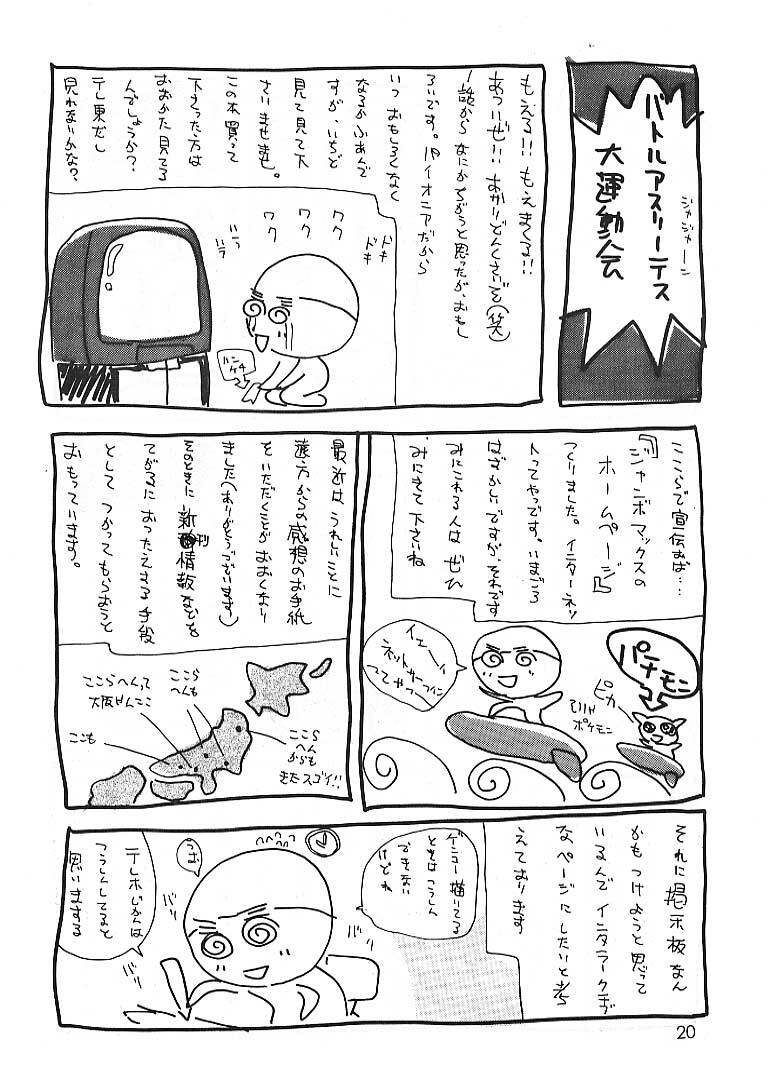 ジャジャーン
バトルアスリーテス
大運動会
もえる!!もえまくる!!
あついぜ!!あかりどんくさいぞ(笑)
一話からなにかちがうと思ったが、おもし
ろいです。パイオニアだから
いつおもしろくなく
なるかふあんで
すが、いちど
見て見て下
さいませませ。
この本買って
下さった方は
おおかた見てる
んでしょうか?
テレ東だし
見れないかな?
ドキ
ドキ
ワク
ワク
ワク
ハラ
ハラ
ハンケチ
ここらで宣伝おば…
『ジャンボマックスの
ホームページ』
つくりました。インターネッ
トってやつです。いまごろ
はずかしいですが、それです
みにこれる人はぜひ
みにきて下さいね
イエーッ
ネットサーフィン
ってやつー
パチモン
ピカ
ひりゃ
ポケモン
最近はうれしいことに
遠方からの感想のお手紙
をいただくことがおおくなり
ました(ありがとうございます)
そのときに新刊情報などを
てがるにおつたえする手段
としてつかってもらおうと
おもっています。
ここら
へんも
ここらへんって
大阪せんここ
ここも
ここら
へん
からも
きたスゴイ!!
それに掲示板なん
かもつけようと思って
いるんでインタラークチブ
なページにしたいと考
えております
ゲンコー描いてる
ときはこうしん
できない
けどね
うむ
バリ
バリ
バリ
バリ
テレホじかんは
こうしんしてると
思いまする
20